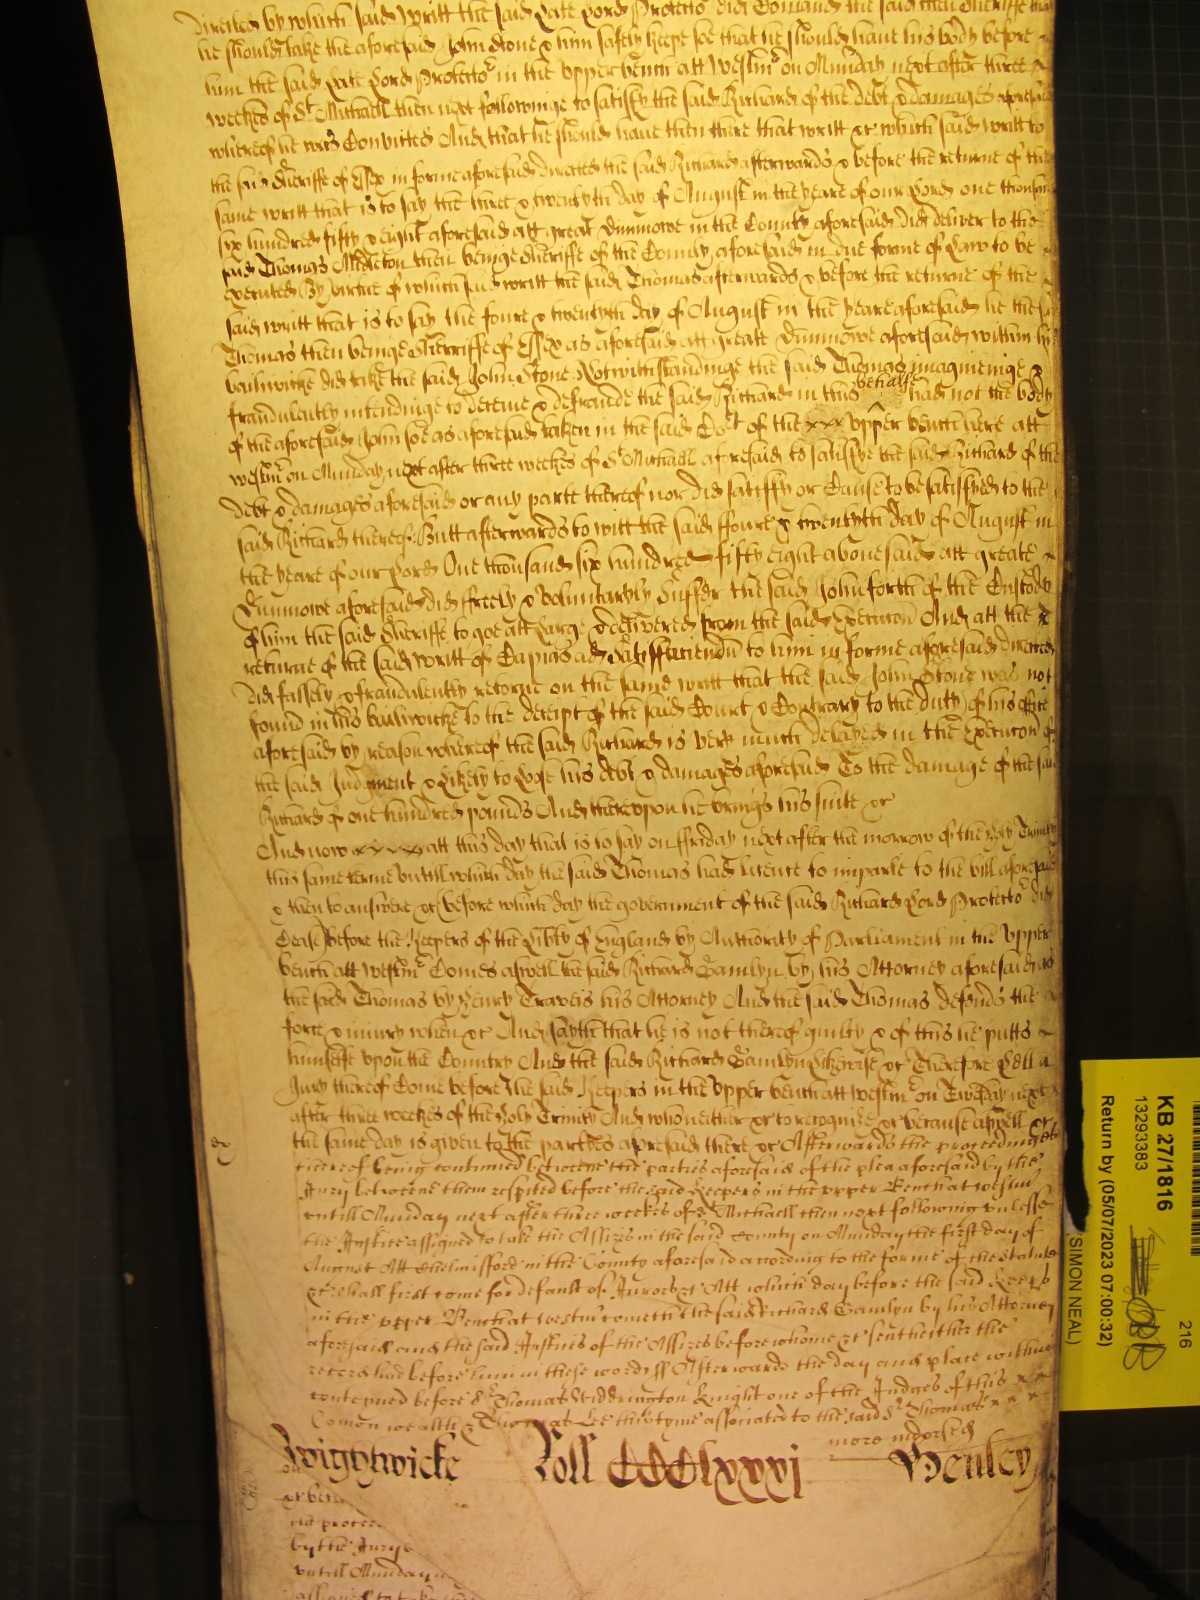 directed by which said writt the said Late Lord Protecto^r did Comand the said then Sheriffe that
he should take the aforesaid John Stone & him safely keepe soe that he should have his body before
him the said Late Lord Protecto^r in the upper bench att Westm^r on Munday next after three
weekes of S^t Michaell then next followinge to satisfy the said Richard of the debt & damages aforesaid
whereof he was Convicted And that he should have then there that writt &c which said writt to
the said Sheriffe of Essex in forme aforesaid directed the said Richard afterwards & before the returne of the
same writt that is to say the three & twentyth day of August in the yeare of our Lord one thousand
six hundred fifty & eight aforesaid att great Dunmowe in the County aforesaid did deliver to the
said Thomas Midleton then beinge Sheriffe of the County aforesaid in due forme of Law to be
executed By virtue of which said writt the said Thomas afterwards & before the returne of the
said writt that is to say the foure & twentyth day of August in the yeare aforesaid he the
Thomas then beinge Sherriffe of Essex as aforesaid att greate Dunmowe aforesaid within his
bailiwicke did take the said John Stone Notwithstandinge the said Thomas imagineinge &
fraudulently intendinge to deceive & defraude the said Richard in this behalfe had not the body
of the aforesaid John soe as aforesaid taken in the said Co^rt of the xxx upper bench here att
westm^r on Munday next after three weekes of S^t Michaell aforesaid to satisfye the said Richard of the
debt & damages aforesaid or any parte thereof nor did satisfy or Cause to be satisfyed to the
said Richard thereof Butt afterwards to witt the said ffoure & twentyth day of August in
the yeare of our Lord One thousand six hundred fifty eight abovesaid att greate
Dunmowe aforesaid did ffreely & voluntaryly Suffer the said John forth of the Custody
of him the said Sheriffe to goe att Large & delivered from the said Execucon And att the
returne of the said writt of Capias ad Satisffaciendu to him in forme aforesaid directed
did falsely & fraudulently retorne on the same writt that the said John Stone was not
found in his bailiwicke to the deceipt of the said Court & Contrary to the duty of his office
aforesaid by reason whereof the said Richard is very much delayed in the Execucon of
the said Judgment & Likely to Lose his debt & damages aforesaid To the damage of the said
Richard of one hundred pounds And thereupon he brings his suite &c
And now xxxx att this day that is to say on ffriday next after the morrow of the Holy Trinity
this same terme untill which day the said Thomas had licence to imparle to the bill aforesaid
& then to answere &c (before which day the government of the said Richard Lord Protecto^r did
Cease) before the Keepers of the Lib^ty of England by Authority of Parliament in the upper
bench att westm^r Comes aswell the said Richard Gamlyn by his Attorney aforesaid as
the said Thomas by Henry Travers his Attorney And the said Thomas defends the
force & iniury when &c And sayth that he is not thereof guilty & of this he putts
himselfe upon the Country And the said Richard Gamlyn Likewise &c Therefore Lett a
Jury thereof Come before the said Keepers in the upper bench att westm^r on Tuesday next
after three weekes of the Holy Trinity And who neither &c to recognize &c because aswell &c
the same day is given to the partyes aforesaid there &c Afterwards the proceedings
thereof being continued betweene the parties aforesaid of the plea aforesaid by the
Jury betweene them respited before the said Keepers in the upper Bench at westm
untill Munday next after three weekes of S^t Michaell then next following unlesse
the Justices assigned to take the Assizes in the said County on Munday the first day of
August Att Chelmisford in the County aforesaid according to the forme of the statute
&c shall first come for default of Jurors &c Att which day before the said Keep^rs
in the upper Bench at westm cometh the said Richard Gamlyn by his Attorney
aforesaid and the said Justices of the Assizes before whome &c sent heither the
record had before him in these words ss Afterwards the day and place within
conteyned before S^r Thomas Widdrington Knight one of the Judges of this
Comon wealth & Thomas Lee this tyme associated to the said S^r Thomas
more indorsed
Wightwicke Roll CCCClxxxvj Henley
&c betw
the proceed
by the Jury
untill Munday
KB 27/1816
13293383
Return by (05/07/2023 07:00:32)
(SIMON NEAL)
216